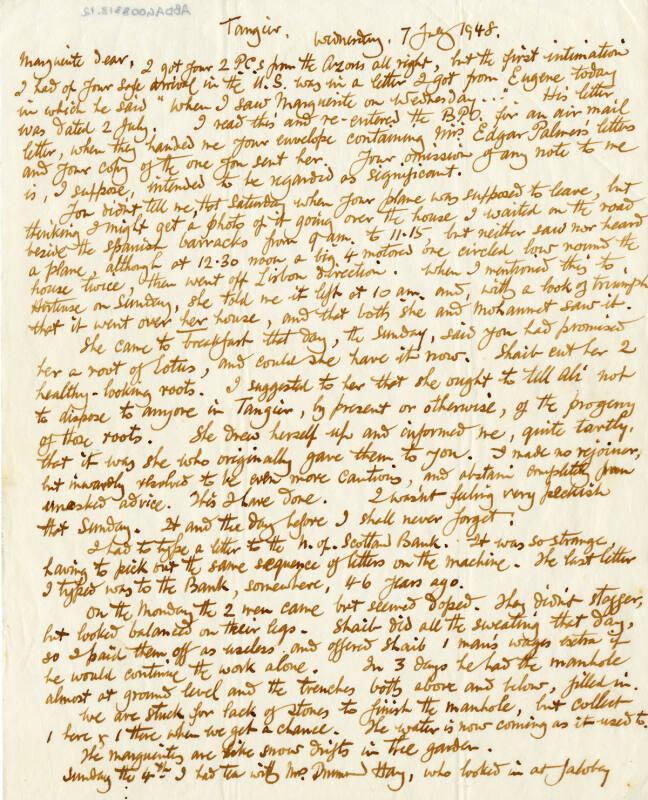 Tangier. Wednesday, 7 July 1948.
Marguerite dear, I got your 2 P.C.s from the Azores all right, but the first intimation
I had of your safe arrival in the U.S. was in a letter I got from Eugene today
in which he said "when I saw Marguerite on Wednesday..." His letter
was dated 2 July. I read this and re-entered the B.P.O. for an air mail
letter, when they handed me your envelope containing Mrs. Edgar Palmers letters
and your copy of the one you sent her. Your omission of any note to me
is, I suppose, intended to be regarded as significant.
You didn't tell me, that Saturday when your plane was supposed to leave, but
thinking I might get a photo of it going over the house I waited on the road
beside the Spanish barracks from 9 am. to 11.15, but neither saw nor heard
a plane, although at 12.30 noon a big 4 motored one circled low round the
house twice, then went off Lisbon direction. When I mentioned this to
Hortense on Sunday, she told me it left at 10 am. and, with a look of triumph
that it went over her house, and that both she and Mohammet saw it.
She came to breakfast that day, the Sunday, said you had promised
her a root of lotus, and could she have it now. Shaib cut her 2
healthy-looking roots. I suggested to her that she ought to tell Ali not
to dispose to anyone in Tangier, by present or otherwise, of the progeny
of those roots. She drew herself up and informed me, quite tartly,
that it was she who originally gave them to you. I made no rejoiner,
but inwardly resolved to be even more cautious, and abstain completely from
unasked advice. This I have done. I wasn't feeling very peckish
that Sunday. It and the day before I shall never forget!
I had to type a letter to the N. of. Scotland Bank. It was so strange,
having to pick out the same sequence of letters on the machine. The last letter
I typed was to the Bank, somewhere, 46 years ago.
On the Monday the 2 men came but seemed doped. They didn't stagger,
but looked balanced on their legs. Shaib did all the sweating that day,
so I paid them off as useless and offered Shaib 1 man's wages extra if
he would continue the work alone. In 3 days he had the manhole
almost at ground level and the trenches both above and below, filled in.
We are stuck for lack of stones to finish the manhole, but collect
1 here & 1 there when we get a chance. The water is now coming as it used to.
The marguerites are like snow drifts in the garden.
Sunday the 4th I had tea with Mrs. Drummond Hay, who looked in at Jacobey